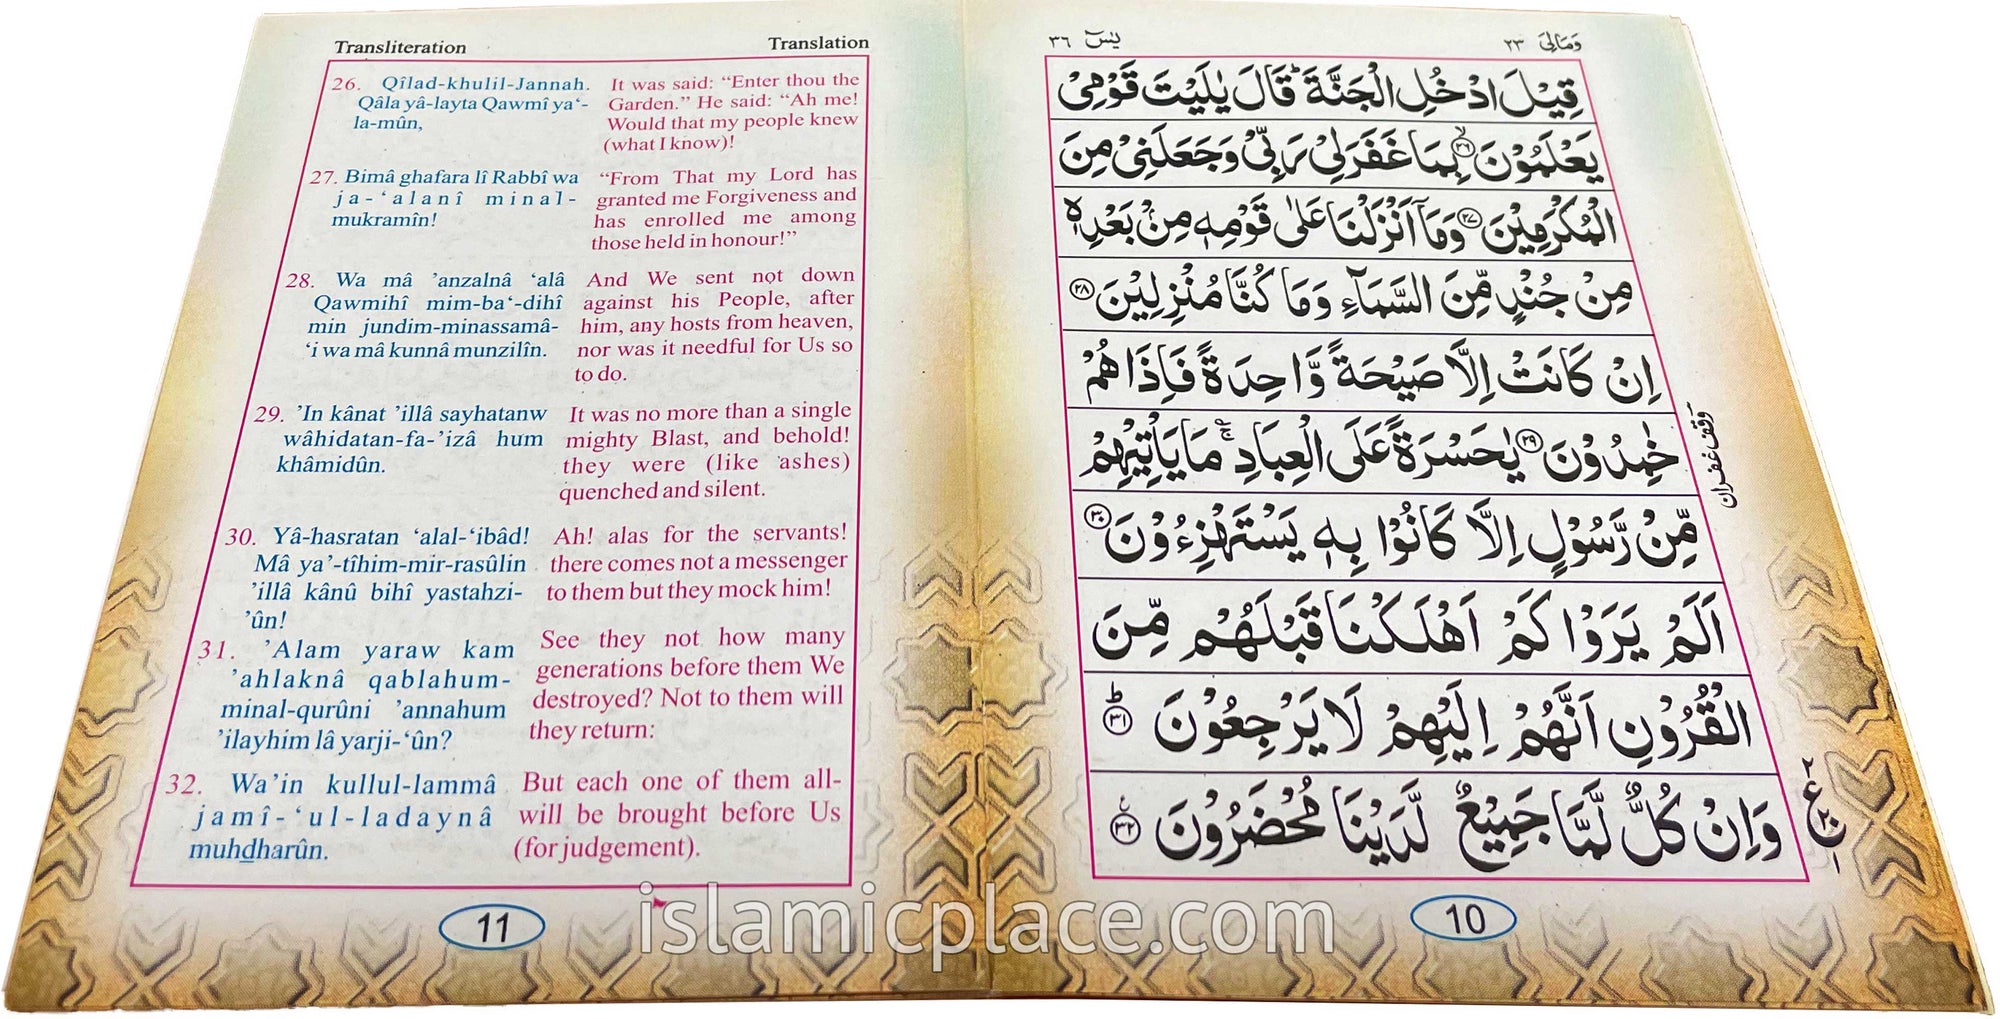 Transliteration
Translation
26. Qîlad-khulil-Jannah.
Qâla yâ-layta Qawmî ya‘-
la-mûn,
It was said: “Enter thou the
Garden.” He said: “Ah me!
Would that my people knew
(what I know)!
27. Bimâ ghafara lî Rabbî wa
ja-‘alanî minal-
mukramîn!
“From That my Lord has
granted me Forgiveness and
has enrolled me among
those held in honour!”
28. Wa mâ ’anzalnâ ‘alâ
Qawmihî mim-ba‘-dihî
min jundim-minassamâ-
‘i wa mâ kunnâ munzilîn.
And We sent not down
against his People, after
him, any hosts from heaven,
nor was it needful for Us so
to do.
29. ’In kânat ’illâ sayhatanw
wâhidatan-fa-’izâ hum
khâmidûn.
It was no more than a single
mighty Blast, and behold!
they were (like ashes)
quenched and silent.
30. Yâ-hasratan ‘alal-‘ibâd!
Mâ ya’-tîhim-mir-rasûlin
’illâ kânû bihî yastahzi-
’ûn!
Ah! alas for the servants!
there comes not a messenger
to them but they mock him!
31. ’Alam yaraw kam
’ahlaknâ qablahum-
minal-qurûni ’annahum
’ilayhim lâ yarji-‘ûn?
See they not how many
generations before them We
destroyed? Not to them will
they return:
32. Wa’in kullul-lammâ
jamî-‘ul-ladaynâ
muhdharûn.
But each one of them all-
will be brought before Us
(for judgement).
11
وَمَالِيَ ٢٣
يٰسٓ ٣٦
قِيْلَ ادْخُلِ الْجَنَّةَ ؕ قَالَ يٰلَيْتَ قَوْمِيْ
يَعْلَمُوْنَ ۙ﴿۲۶﴾ بِمَا غَفَرَلِيْ رَبِّيْ وَجَعَلَنِيْ مِنَ
الْمُكْرَمِيْنَ ﴿۲۷﴾ وَمَاۤ اَنْزَلْنَا عَلٰى قَوْمِهٖ مِنْۢ بَعْدِهٖ
مِنْ جُنْدٍ مِّنَ السَّمَآءِ وَمَا كُنَّا مُنْزِلِيْنَ ﴿۲۸﴾
اِنْ كَانَتْ اِلَّا صَيْحَةً وَّاحِدَةً فَاِذَا هُمْ
خٰمِدُوْنَ ﴿۲۹﴾ يٰحَسْرَةً عَلَى الْعِبَادِ ۚ مَا يَاْتِيْهِمْ
مِّنْ رَّسُوْلٍ اِلَّا كَانُوْا بِهٖ يَسْتَهْزِءُوْنَ ﴿۳۰﴾
اَلَمْ يَرَوْا كَمْ اَهْلَكْنَا قَبْلَهُمْ مِّنَ
الْقُرُوْنِ اَنَّهُمْ اِلَيْهِمْ لَا يَرْجِعُوْنَ ؕ﴿۳۱﴾
وَاِنْ كُلٌّ لَّمَّا جَمِيْعٌ لَّدَيْنَا مُحْضَرُوْنَ ۠﴿۳۲﴾
وقف غفران
٢ ع ٢٠ ١
10
islamicplace.com